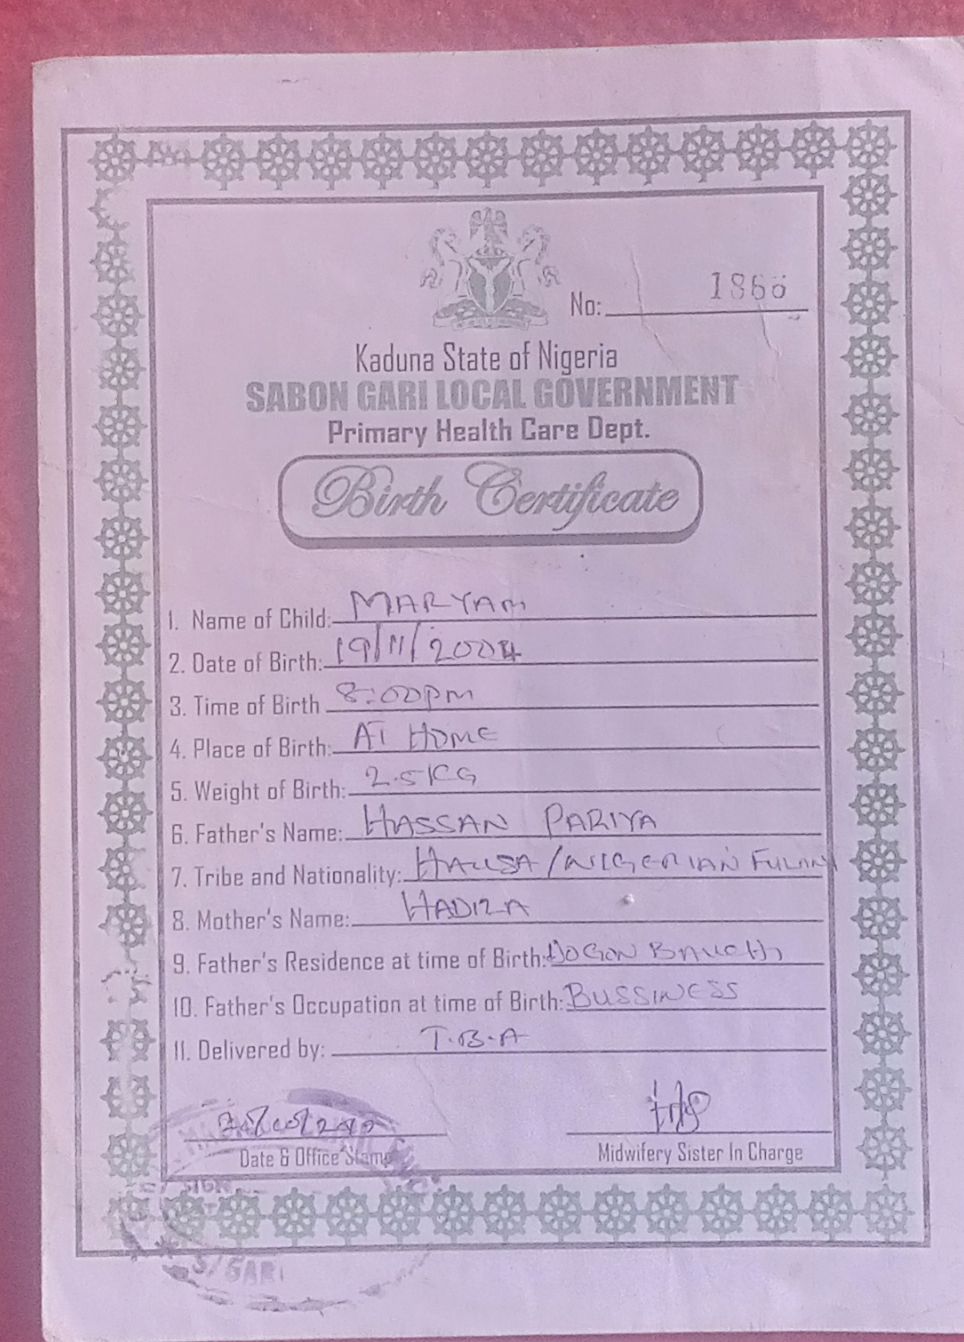 No: 1866
Kaduna State of Nigeria
SABON GARI LOCAL GOVERNMENT
Primary Health Care Dept.
Birth Certificate
1. Name of Child: MARYAM
2. Date of Birth: 19/11/2004
3. Time of Birth 8:00pm
4. Place of Birth: AT HOME
5. Weight of Birth: 2.5KG
6. Father's Name: HASSAN PARIYA
7. Tribe and Nationality: HAUSA/NIGERIAN FULANI
8. Mother's Name: HADIZA
9. Father's Residence at time of Birth: DOGON BAUCHI
10. Father's Occupation at time of Birth: BUSSINESS
11. Delivered by: T.B.A
Date & Office Stamp
Midwifery Sister In Charge
SIGN
S/GARI